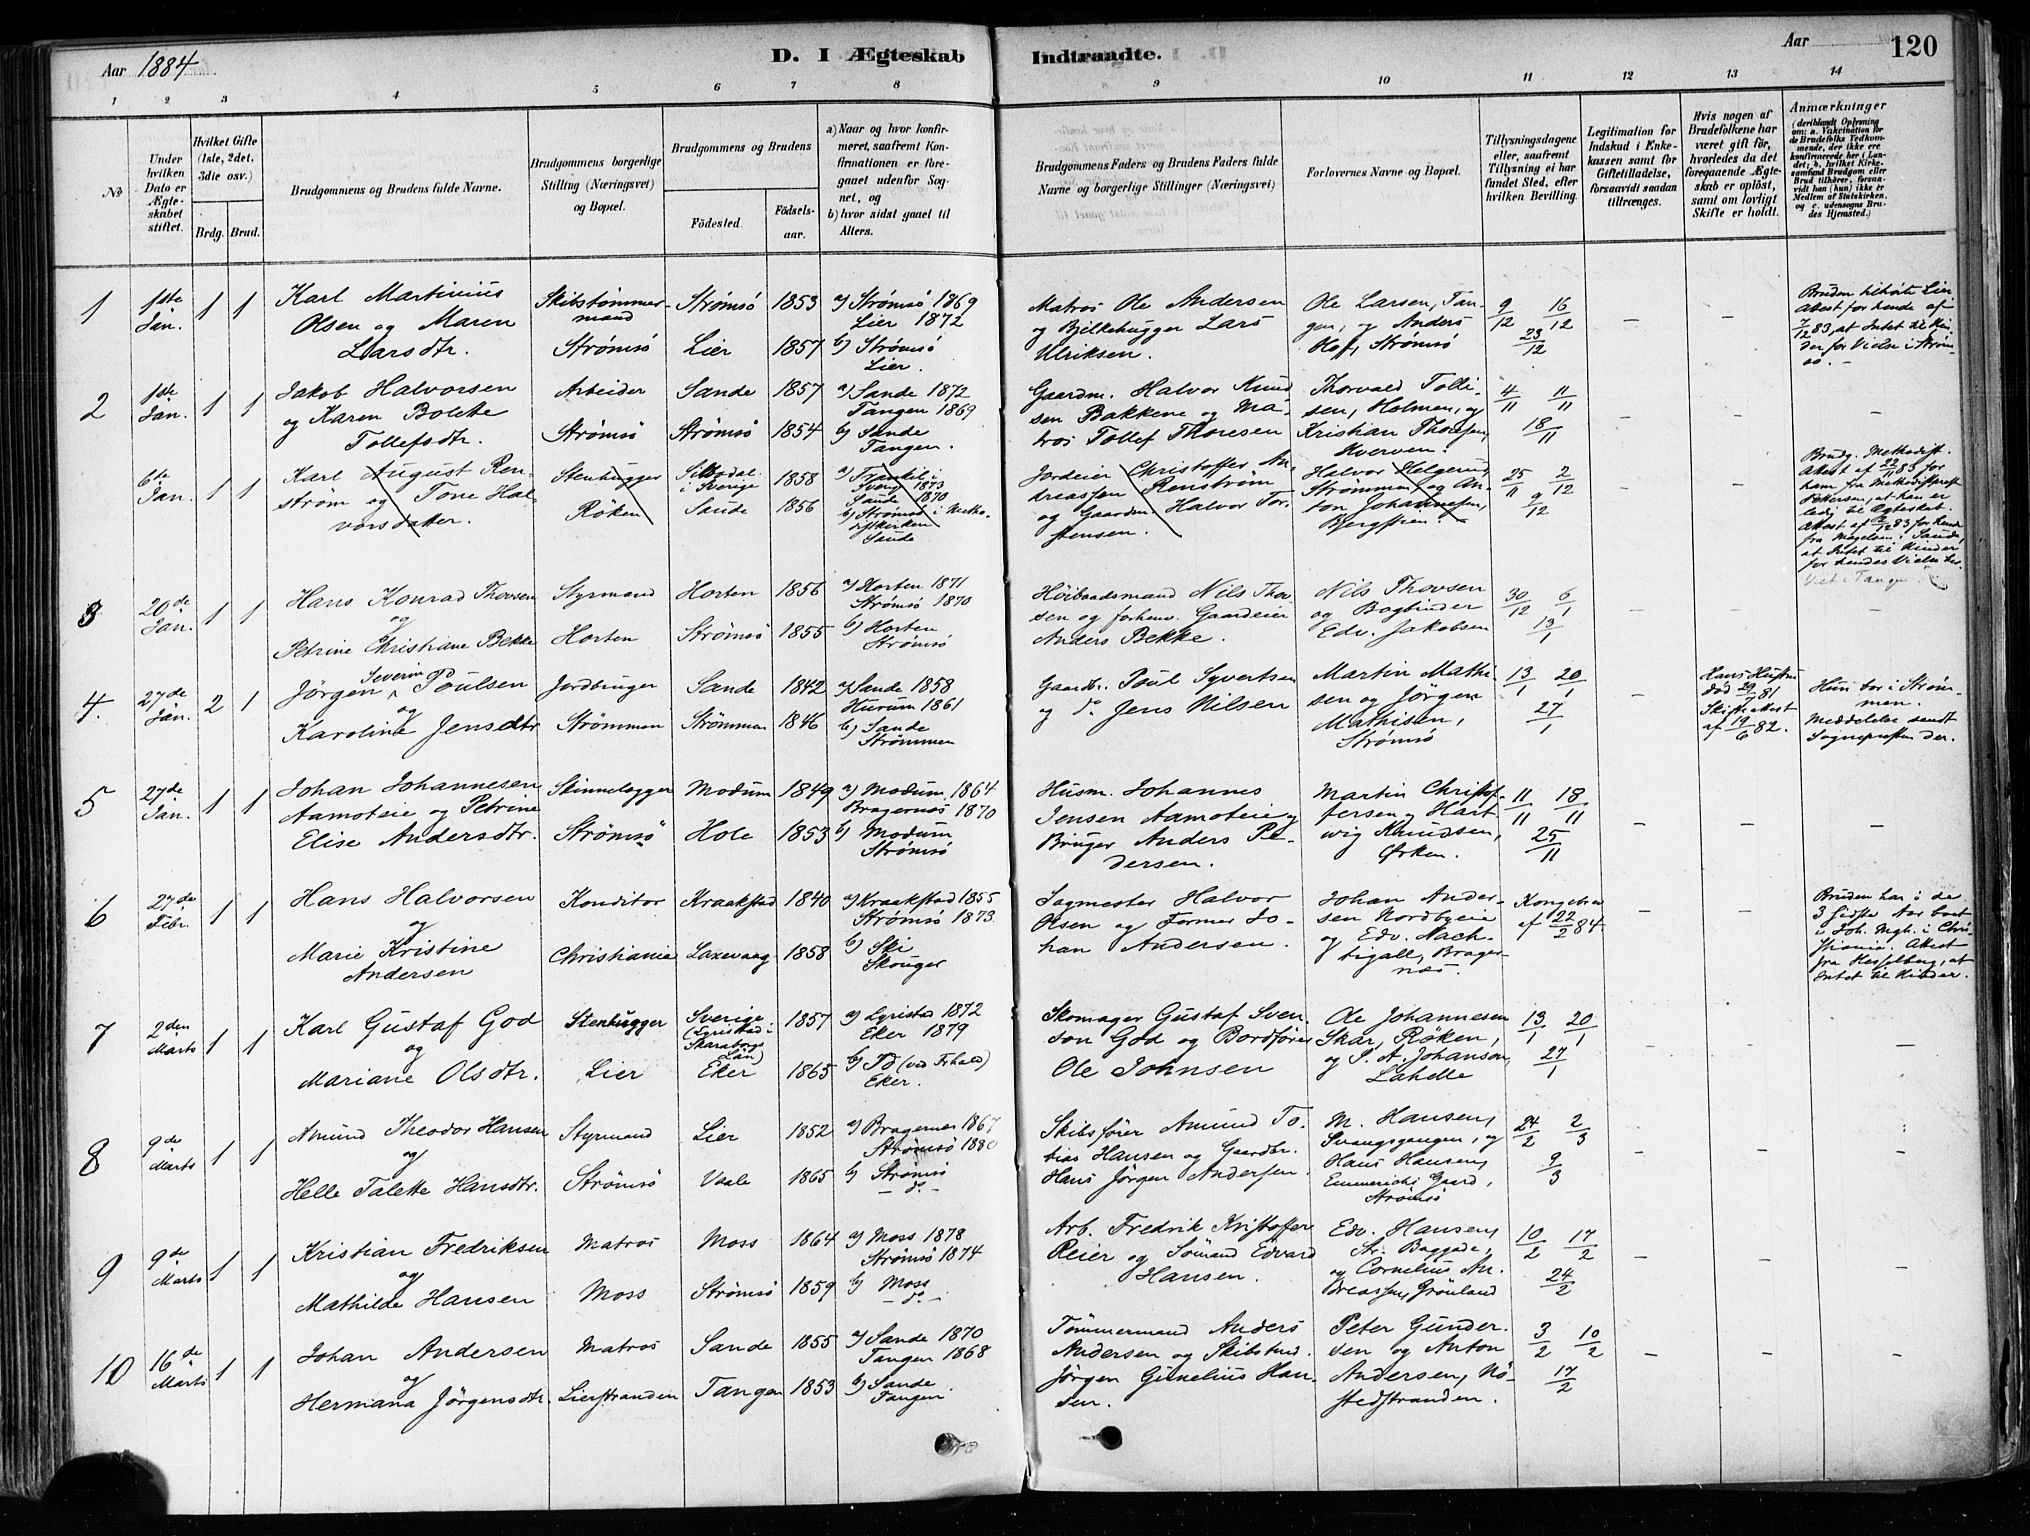 Aar 1884
D. I Ægteskab Indtraadte.
Aar
120
1 2 3 4 5 6 7 8 9 10 11 12 13 14
No
Under hvilken Dato er Ægteskabet stiftet.
Hvilket Gifte (1ste, 2det, 3die osv.)
Brdg. Brud.
Brudgommens og Brudens fulde Navne.
Brudgommens borgerlige Stilling (Næringsvei) og Bopæl.
Brudgommens og Brudens
Födested.
Födselsaar.
a) Naar og hvor konfirmeret, saafremt Konfirmationen er foregaaet udenfor Sognet, og
b) hvor sidst gaaet til Alters.
Brudgommens Faders og Brudens Faders fulde Navne og borgerlige Stillinger (Næringsvei)
Forlovernes Navne og Bopæl.
Tillysningsdagene eller, saafremt Tillysning ei har fundet Sted, efter hvilken Bevilling.
Legitimation for Indskud i Enkekassen samt for Giftetilladelse, forsaavidt saadan tiltrænges.
Hvis nogen af Brudefolkene har været gift för, hvorledes da det foregaaende Ægteskab er oplöst, samt om lovligt Skifte er holdt.
Anmærkninger
(deriblandt Oplysning om: a. Vakcination for de Brudefolks Vedkommende, der ikke ere konfirmerede her i Landet; b. hvilket Kirkesamfund Brudgom eller Brud tilhörer, forsaavidt han (hun) ikke er Medlem af Statskirken, og c. udensogns Brudes Hjemsted.)
1
1ste Jan.
1 1
Karl Martinius
Olsen og Maren
Larsdtr.
Skibstømmermand
Strömsö
Strömsö 1853
Lier 1857
a) Strömsö 1869
Lier 1872
b) Strömsö
Lier.
Matros Ole Andersen
og Bjelkehugger Lars
Ulriksen.
Ole Larsen, Tangen, og Anders
Hof, Strömsö
9/12 16/12
23/12
Bruden tilhörte Lier
Attest for hende af
7/12 83, at Intet til Hinder for Vielse i Strömsö.
2
1ste Jan.
1 1
Jakob Halvorsen
og Karen Bolette
Tollefsdtr.
Arbeider
Strömsö
Sande 1857
Strömsö 1854
a) Sande 1872
Tangen 1869
b) Sande
Tangen.
Gaardm. Halvor Knudsen Bakkene og Matros Tollef Thoresen
Thorvald Tollisen, Holmen, og
Kristian Thoresen,
Hverven.
4/11 11/11
18/11
6te Jan.
1 1
Karl August Renström og Tone Halvorsdatter.
Stenhugger
Röken
i Sverige 1858
Sande 1856
Sande 1870
b) Strömsö i Methodistkirken
Sande
Jordeier Christoffer Andreassen Renström
og Gaardm. Halvor Torstensen.
Halvor Helgerud
Strömmen, og Anton Johannesen,
25/11 2/12
9/12
Brudg. Methodist.
Attest af 22/11 83 for
ham fra Methodistprest
Pettersen, at han er
ledig til Ægteskab.
Attest af 2/12 83 for hende
fra Magelsen i Sande,
at Intet til Hinder
for hendes Vielse her.
Viet i Tangen
3
20de Jan.
1 1
Hans Konrad Thovsen
og
Petrine Christiane Bekke
Styrmand
Horten
Horten 1856
Strömsö 1855
a) Horten 1871
Strömsö 1870
b) Horten
Strömsö
Höibaadsmand Nils Thovsen og forhenv. Gaardeier
Anders Bekke.
Nils Thovsen
og Bogbinder
Edv. Jakobsen
30/12 6/1
13/1
4.
27de Jan.
2 1
Jörgen Severin Poulsen
og
Karoline Jensdtr
Jordbruger
Strömmen
Sande 1842
Strömmen 1846
a) Sande 1858
Hurum 1861
b) Sande
Strömmen
Gaardbr. Poul Syvertsen
og do Jens Nilsen
Martin Mathisen og Jörgen
Mathisen,
Strömsö
13/1 20/1
27/1
Hans Hustru
död 29/7 81
Skifteattest
af 19/6 82.
Hun bor i Strömmen.
Meddelelse sendt
Sognepresten der.
5
27de Jan.
1 1
Johan Johannesen
Aamoteie og Petrine
Elise Andersdtr.
Skinnelægger
Strömsö
Modum 1849
Hole 1853
a) Modum 1864
Bragernes 1870
b) Modum
Strömsö
Husm. Johannes
Jensen Aamoteie og
Bruger Anders Pedersen.
Martin Christoffersen og Hartwig Knudsen,
Örken.
11/11 18/11
25/11
6
27de Febr.
1 1
Hans Halvorsen
og
Marie Kristine
Andersen
Konditor
Christiania
Kraakstad 1840
Laxevaag 1858
a) Kraakstad 1855
Strömsö 1873
b) Ski
Skouger
Sagmester Halvor
Olsen og Former Johan Andersen.
Johan Andersen Nordbyeie
og Edv. Nachtigall, Bragernes.
Kongebrev
af 22/2 84
Bruden har i de
3 sidste Aar boet
i Joh. Mgh. i Christiania. Attest
fra Hesselberg, at
Intet til Hinder.
7
2den Marts
1 1
Karl Gustaf God
og
Mariane Olsdtr.
Stenhugger
Lier
Sverige
(Lyrestad i
Skaraborgs
Län) 1857
Eker 1865
a) Lyrestad 1872
Eker 1879
Eker.
Skomager Gustaf Svenson God og Bordförer
Ole Johnsen
Ole Johannesen
Skar, Röken,
og P. A. Johanson,
Lahelle
13/1 20/1
27/1
8
9de Marts
1 1
Amund Theodor Hansen
og
Helle Talette Hansdtr.
Styrmand
Strömsö
Lier 1852
Vaale 1865
a) Bragernes 1867
Strömsö 1880
b) Strömsö
- do -
Skibsförer Amund Tobias Hansen og Gaardbr.
Hans Jörgen Andersen
M. Hansen,
Svangsgangen, og
Hans Hansen,
Emmerichs Gaard,
Strömsö
24/2 2/3
9/3
9
9de Marts
1 1
Kristian Fredriksen
og
Mathilde Hansen
Matros
Moss
Moss 1864
Strömsö 1859
a) Moss 1878
Strömsö 1874
b) Moss
- do -
Arb. Fredrik Kristoffer
Reier og Sömand Edvard
Hansen.
Edv. Hansen,
Str. Baggade,
og Cornelius Andreassen, Grönland
10/2 17/2
24/2
10
16de Marts
1 1
Johan Andersen
og
Hermana Jörgensdtr.
Matros
Lierstranden
Sande 1855
Tangen 1853
a) Sande 1870
Tangen 1868
b) Sande
Tangen
Tömmermand Anders
Andersen og Skibstmd.
Jörgen Gunelius Hansen.
Peter Gundersen og Anton
Andersen, Nöstedstranden.
3/2 10/2
17/2